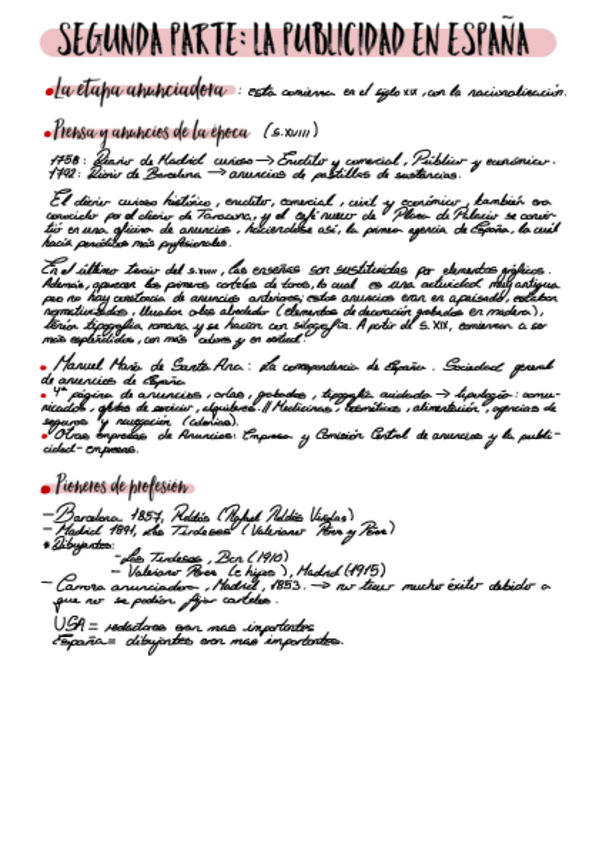 SEGUNDA PARTE: LA PUBLICIDAD EN ESPAÑA
• La etapa anunciadora : esta comienza en el siglo XIX, con la nacionalización.
• Prensa y anuncios de la época (s.XVIII)
1758: Diario de Madrid curioso → Erudito y comercial, Público y económico.
1792: Diario de Barcelona → anuncios de pastillas de sustancias.
El diario curioso histórico, erudito, comercial, civil y económico, también era
conocido por el diario de Tarazona, y el café nuevo de Plaza de Palacio se convir-
tió en una oficina de anuncios, haciéndose así, la primera agencia de España, la cuál
hacía periódicos más profesionales.
En el último tercio del s.XVIII, las enseñas son sustituidas por elementos gráficos.
Además, aparecen los primeros carteles de toros, lo cual es una actividad muy antigua
pero no hay constancia de anuncios anteriores; estos anuncios eran en apaisado, estaban
normativizados, llevaban orlas alrededor (elementos de decoración grabados en madera),
tenían tipografía romana y se hacían con silografía. A partir del S. XIX, comienzan a ser
más espléndidos, con más colores y en vertical.
• Manuel María de Santa Ana: La correspondencia de España. Sociedad general
de anuncios de España
• 4ª página de anuncios, orlas, grabados, tipografía cuidada → tipología: comu-
nicados, de servicio, alquileres // Medicinas, cosméticos, alimentación, agencias de
seguros y navegación (colonias).
• Otras empresas de Anuncios: Empresa y Comisión Central de anuncios y la publi-
cidad-empresas.
• Pioneros de profesión
- Barcelona 1857, Roldós (Rafael Roldós Viñolas)
- Madrid 1891, Los Tiroleses (Valeriano Pérez y Pérez)
• Dibujantes:
- Los Tiroleses, Bcn (1910)
- Valeriano Pérez (e hijos), Madrid (1915)
- Carroza anunciadora, Madrid, 1853. → no tuvo mucho éxito debido a
que no se podían fijar carteles.
USA = redactores eran mas importantes
España = dibujantes eran mas importantes.